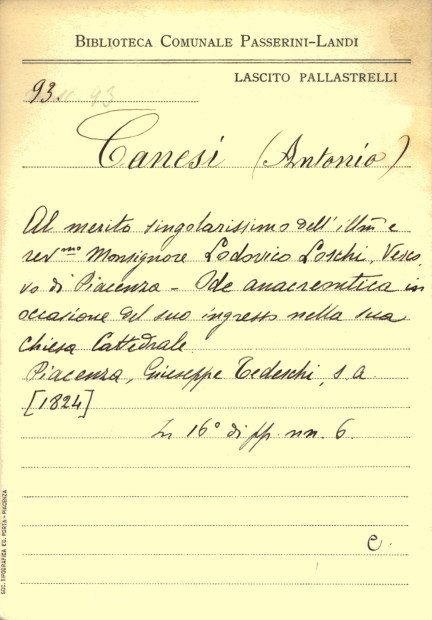 BIBLIOTECA COMUNALE PASSERINI-LANDI
LASCITO PALLASTRELLI
93.
Canesi (Antonio)
Al merito singolarissimo dell'illm̃ e
revmo Monsignore Lodovico Loschi, Vesco
vo di Piacenza - Ode anacreontica in
occasione del suo ingresso nella sua
chiesa Cattedrale
Piacenza, Giuseppe Tedeschi, s. a.
[1824]
In 16° di pp. nn. 6.
e.
SOC. TIPOGRAFICA ED. PORTA - PIACENZA